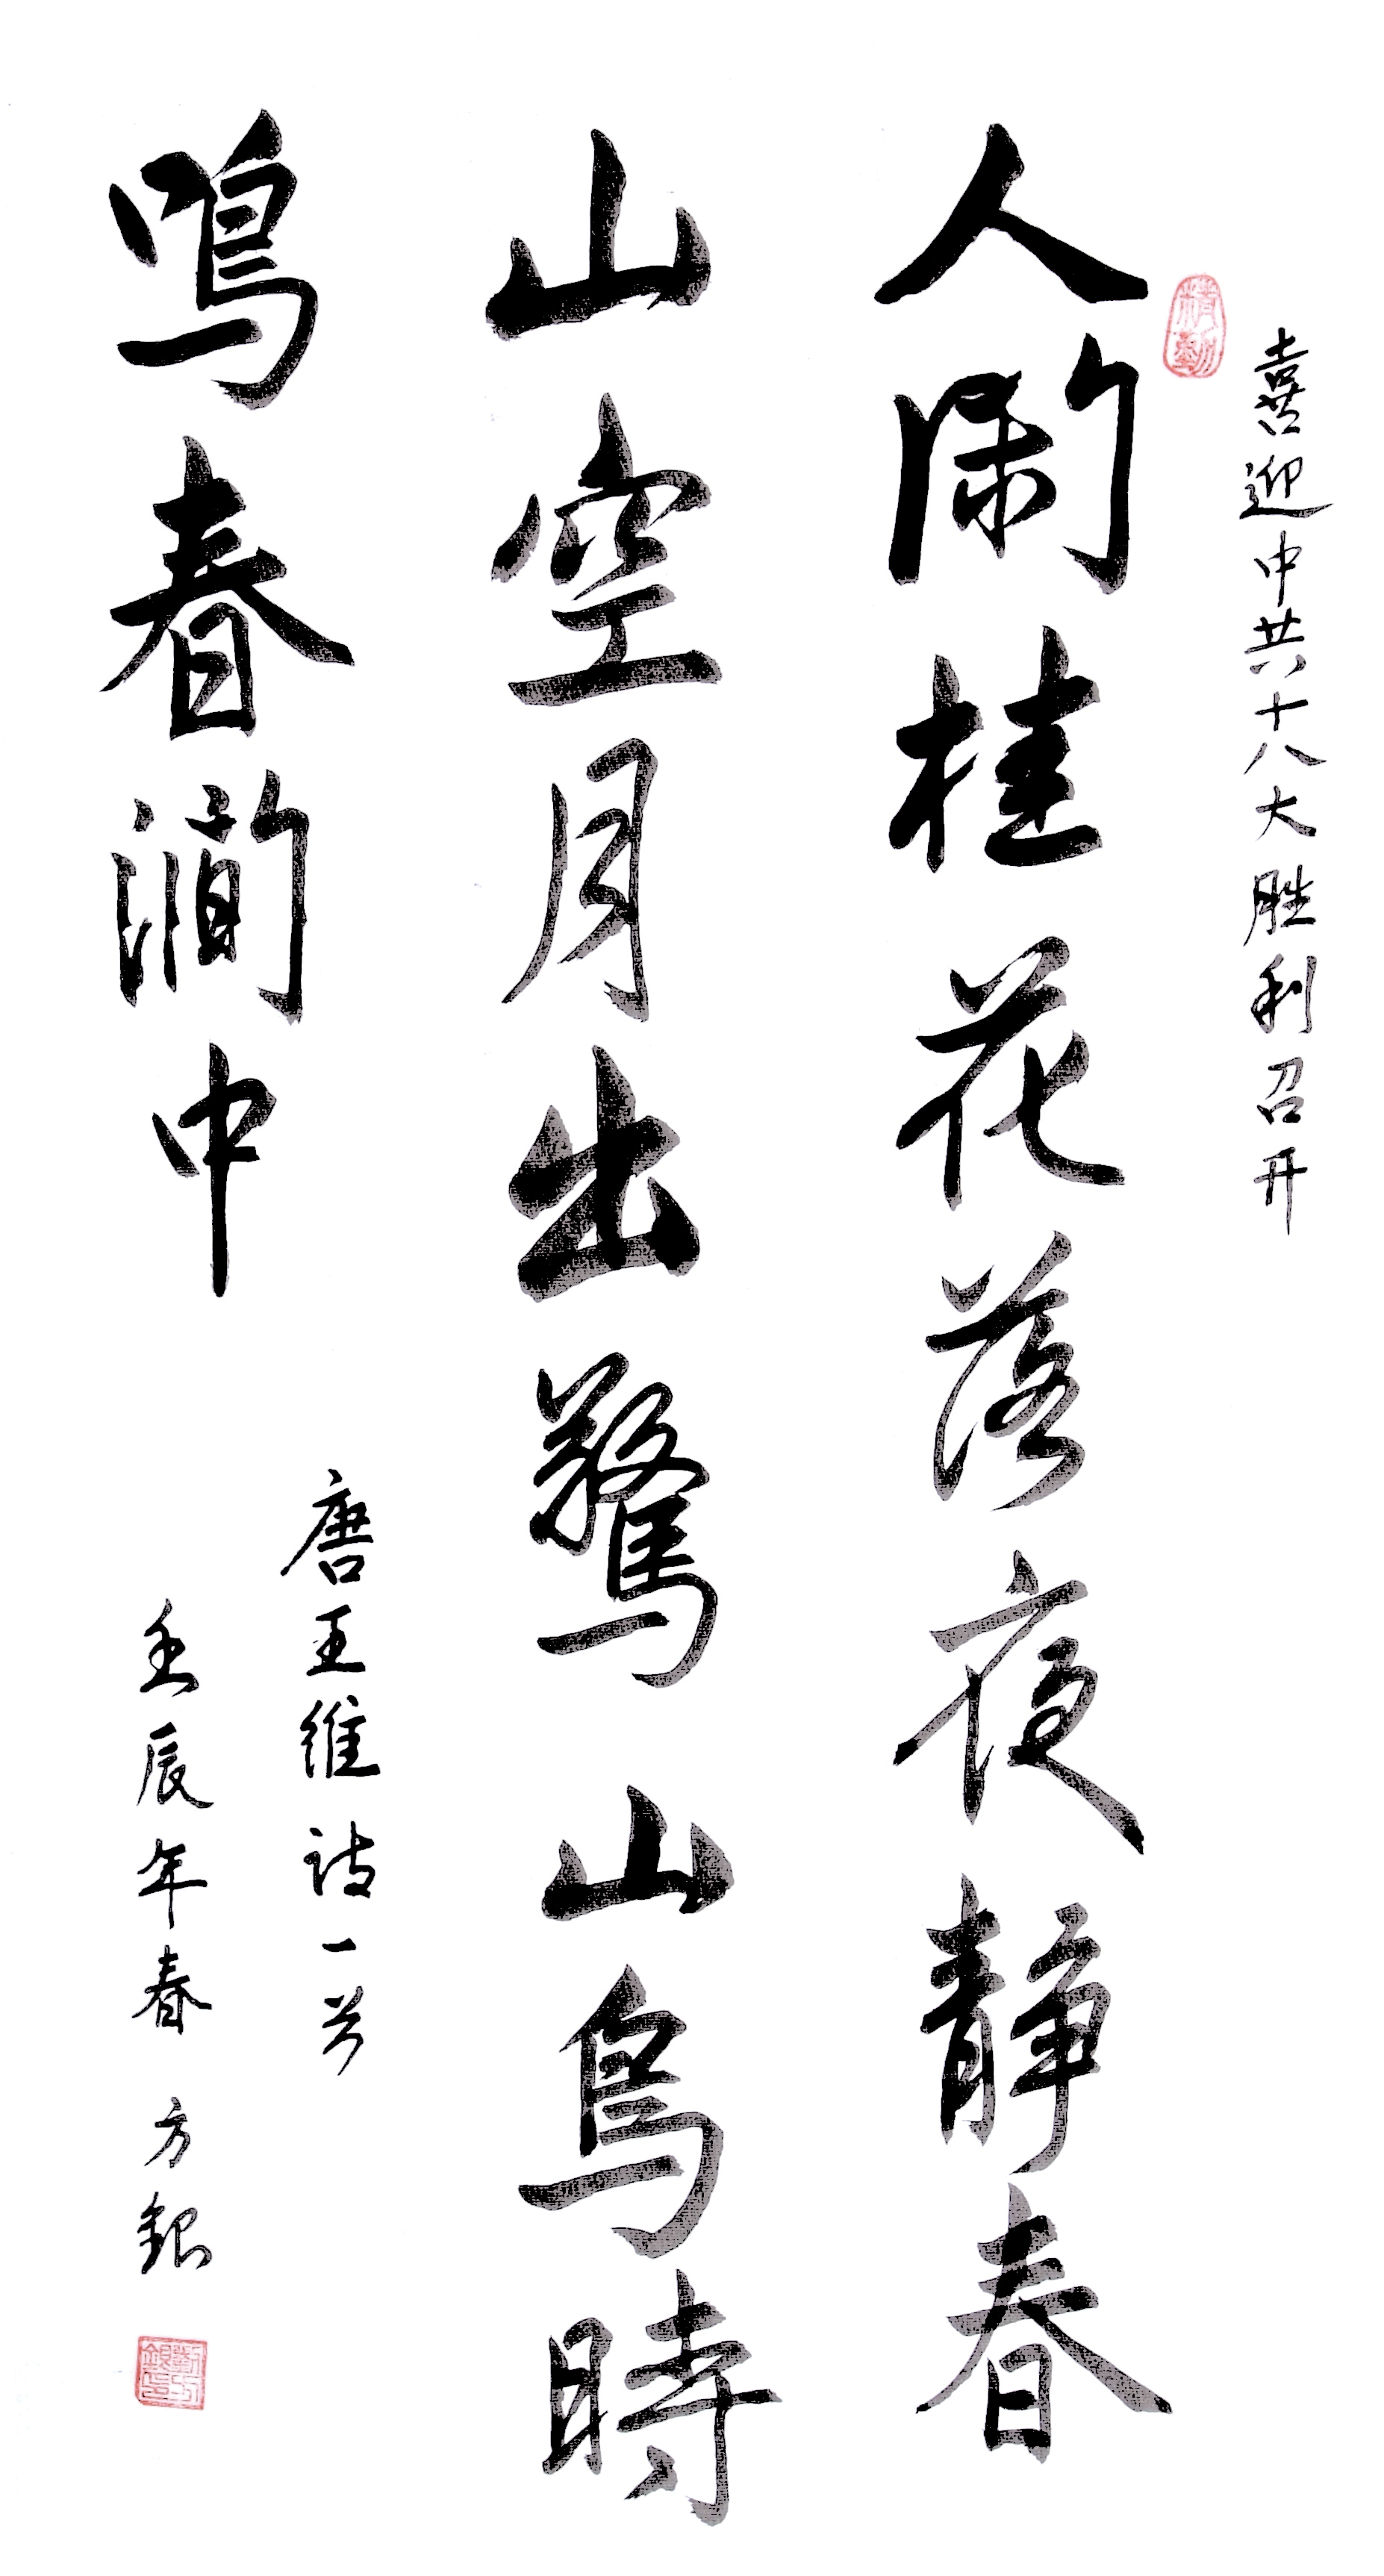 喜迎中共十八大胜利召开
人闲桂花落夜静春
山空月出驚山鸟時
鸣春澗中
唐王维诗一首
壬辰年春 方銀